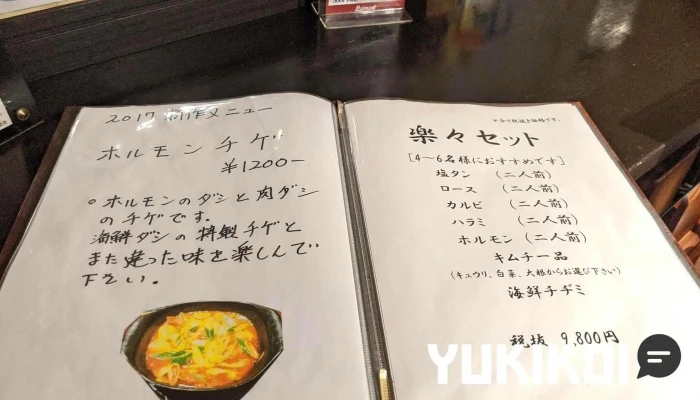 2017 新作メニュー
ホルモンチゲ
¥1200-
。ホルモンのダシと肉ダシ
のチゲです。
海鮮ダシの特製チゲと
また違った味を楽しんで
下さい。
※全て税抜き価格です。
楽々セット
[4〜6名様におすすめです]
塩タン (二人前)
ロース (二人前)
カルビ (二人前)
ハラミ (二人前)
ホルモン (二人前)
キムチ一品
(キュウリ、白菜、大根からお選び下さい)
海鮮チヂミ
税抜 9,800円
YUKIKOI